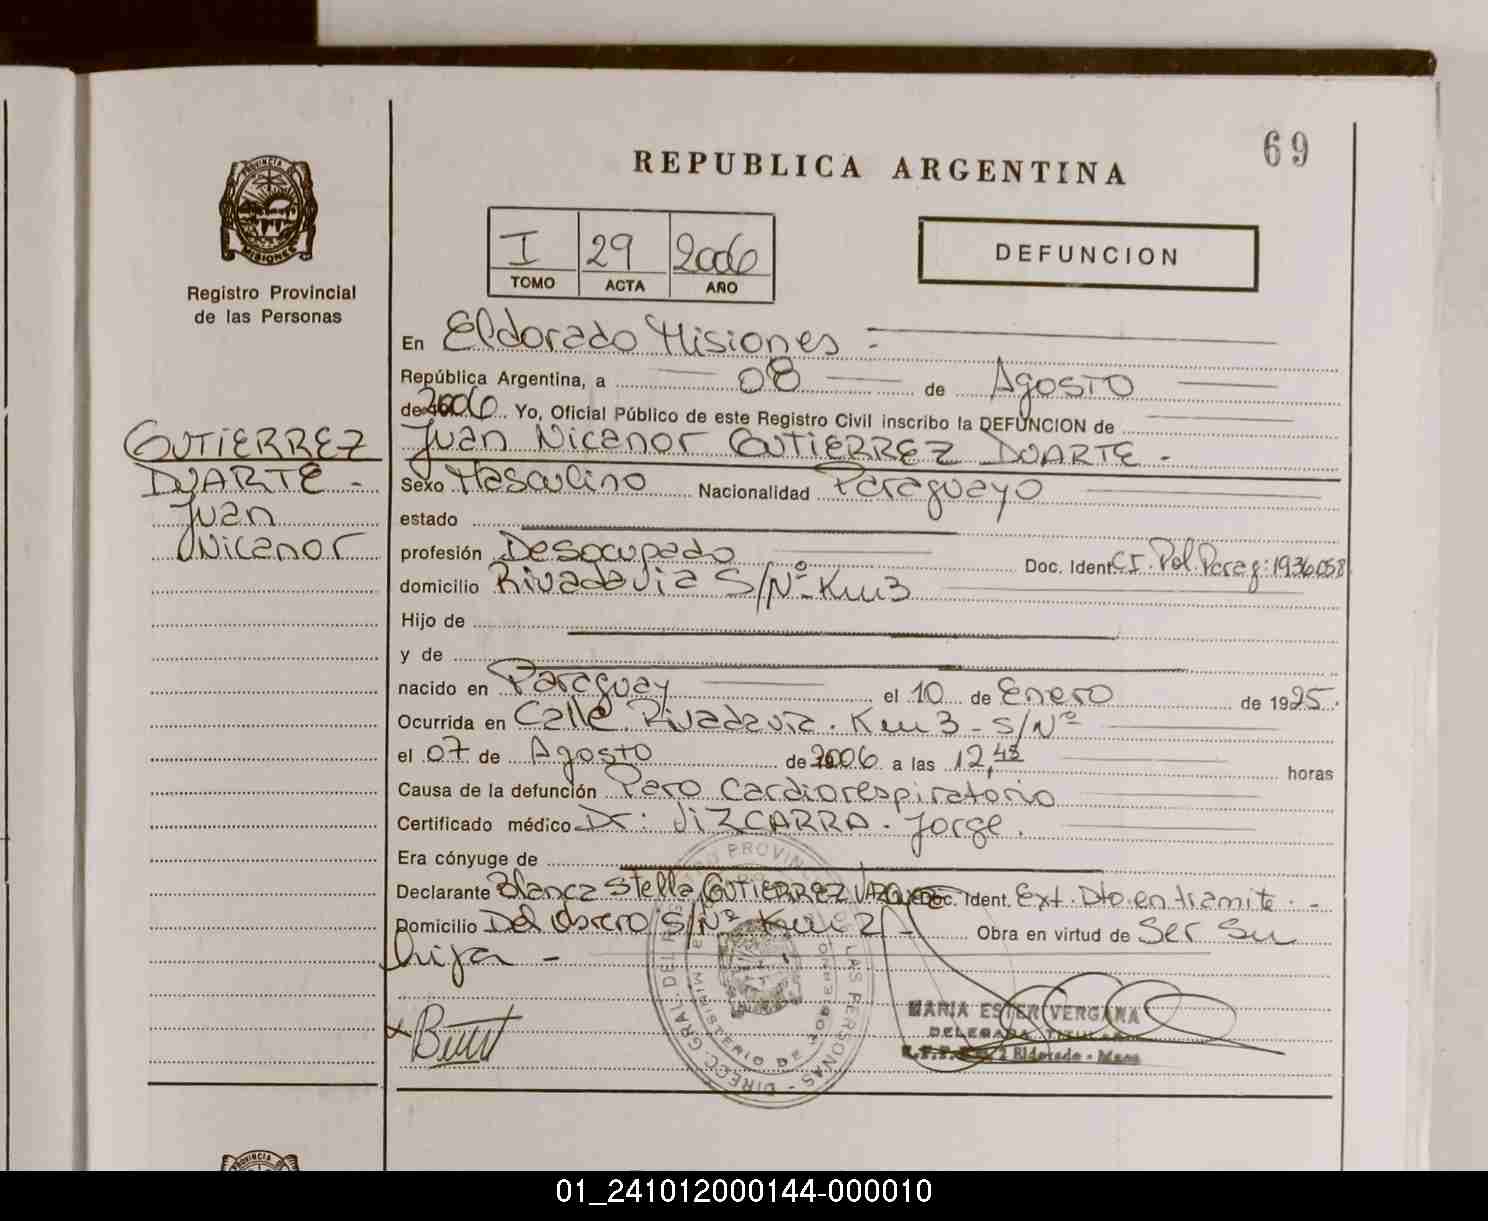 69
REPUBLICA ARGENTINA
PROVINCIA DE
MISIONES
Registro Provincial
de las Personas
I 29 2006
TOMO ACTA AÑO
DEFUNCION
GUTIERREZ
DUARTE -
Juan
Nicanor
En Eldorado Misiones -
República Argentina, a 08 de Agosto
de 2006 Yo, Oficial Público de este Registro Civil inscribo la DEFUNCION de
Juan Nicanor GUTIERREZ DUARTE -
Sexo Masculino Nacionalidad Paraguayo
estado
profesión Desocupado Doc. Ident. CI. Pol. Parag: 1936058
domicilio Rivadavia S/Nº Km3
Hijo de
y de
nacido en Paraguay el 10 de Enero de 1925.
Ocurrida en Calle Rivadavia. Km 3 - S/Nº
el 07 de Agosto de 2006 a las 12,45 horas
Causa de la defunción Paro Cardiorespiratorio
Certificado médico Dr. VIZCARRA. Jorge.
Era cónyuge de
Declarante Blanca Stella GUTIERREZ VAZQUEZ Doc. Ident. Ext. Dto. en tramite. -
Domicilio Del obrero S/Nº Km 2 - Obra en virtud de Ser Su
hija -
MARIA ESTER VERGARA
DELEGADA TITULAR
2 Eldorado - Mnes
DIRECC. GRAL. DEL REGISTRO PROVINCIAL DE LAS PERSONAS
MINISTERIO DE GOBIERNO
PROVINCIA DE
01_241012000144-000010